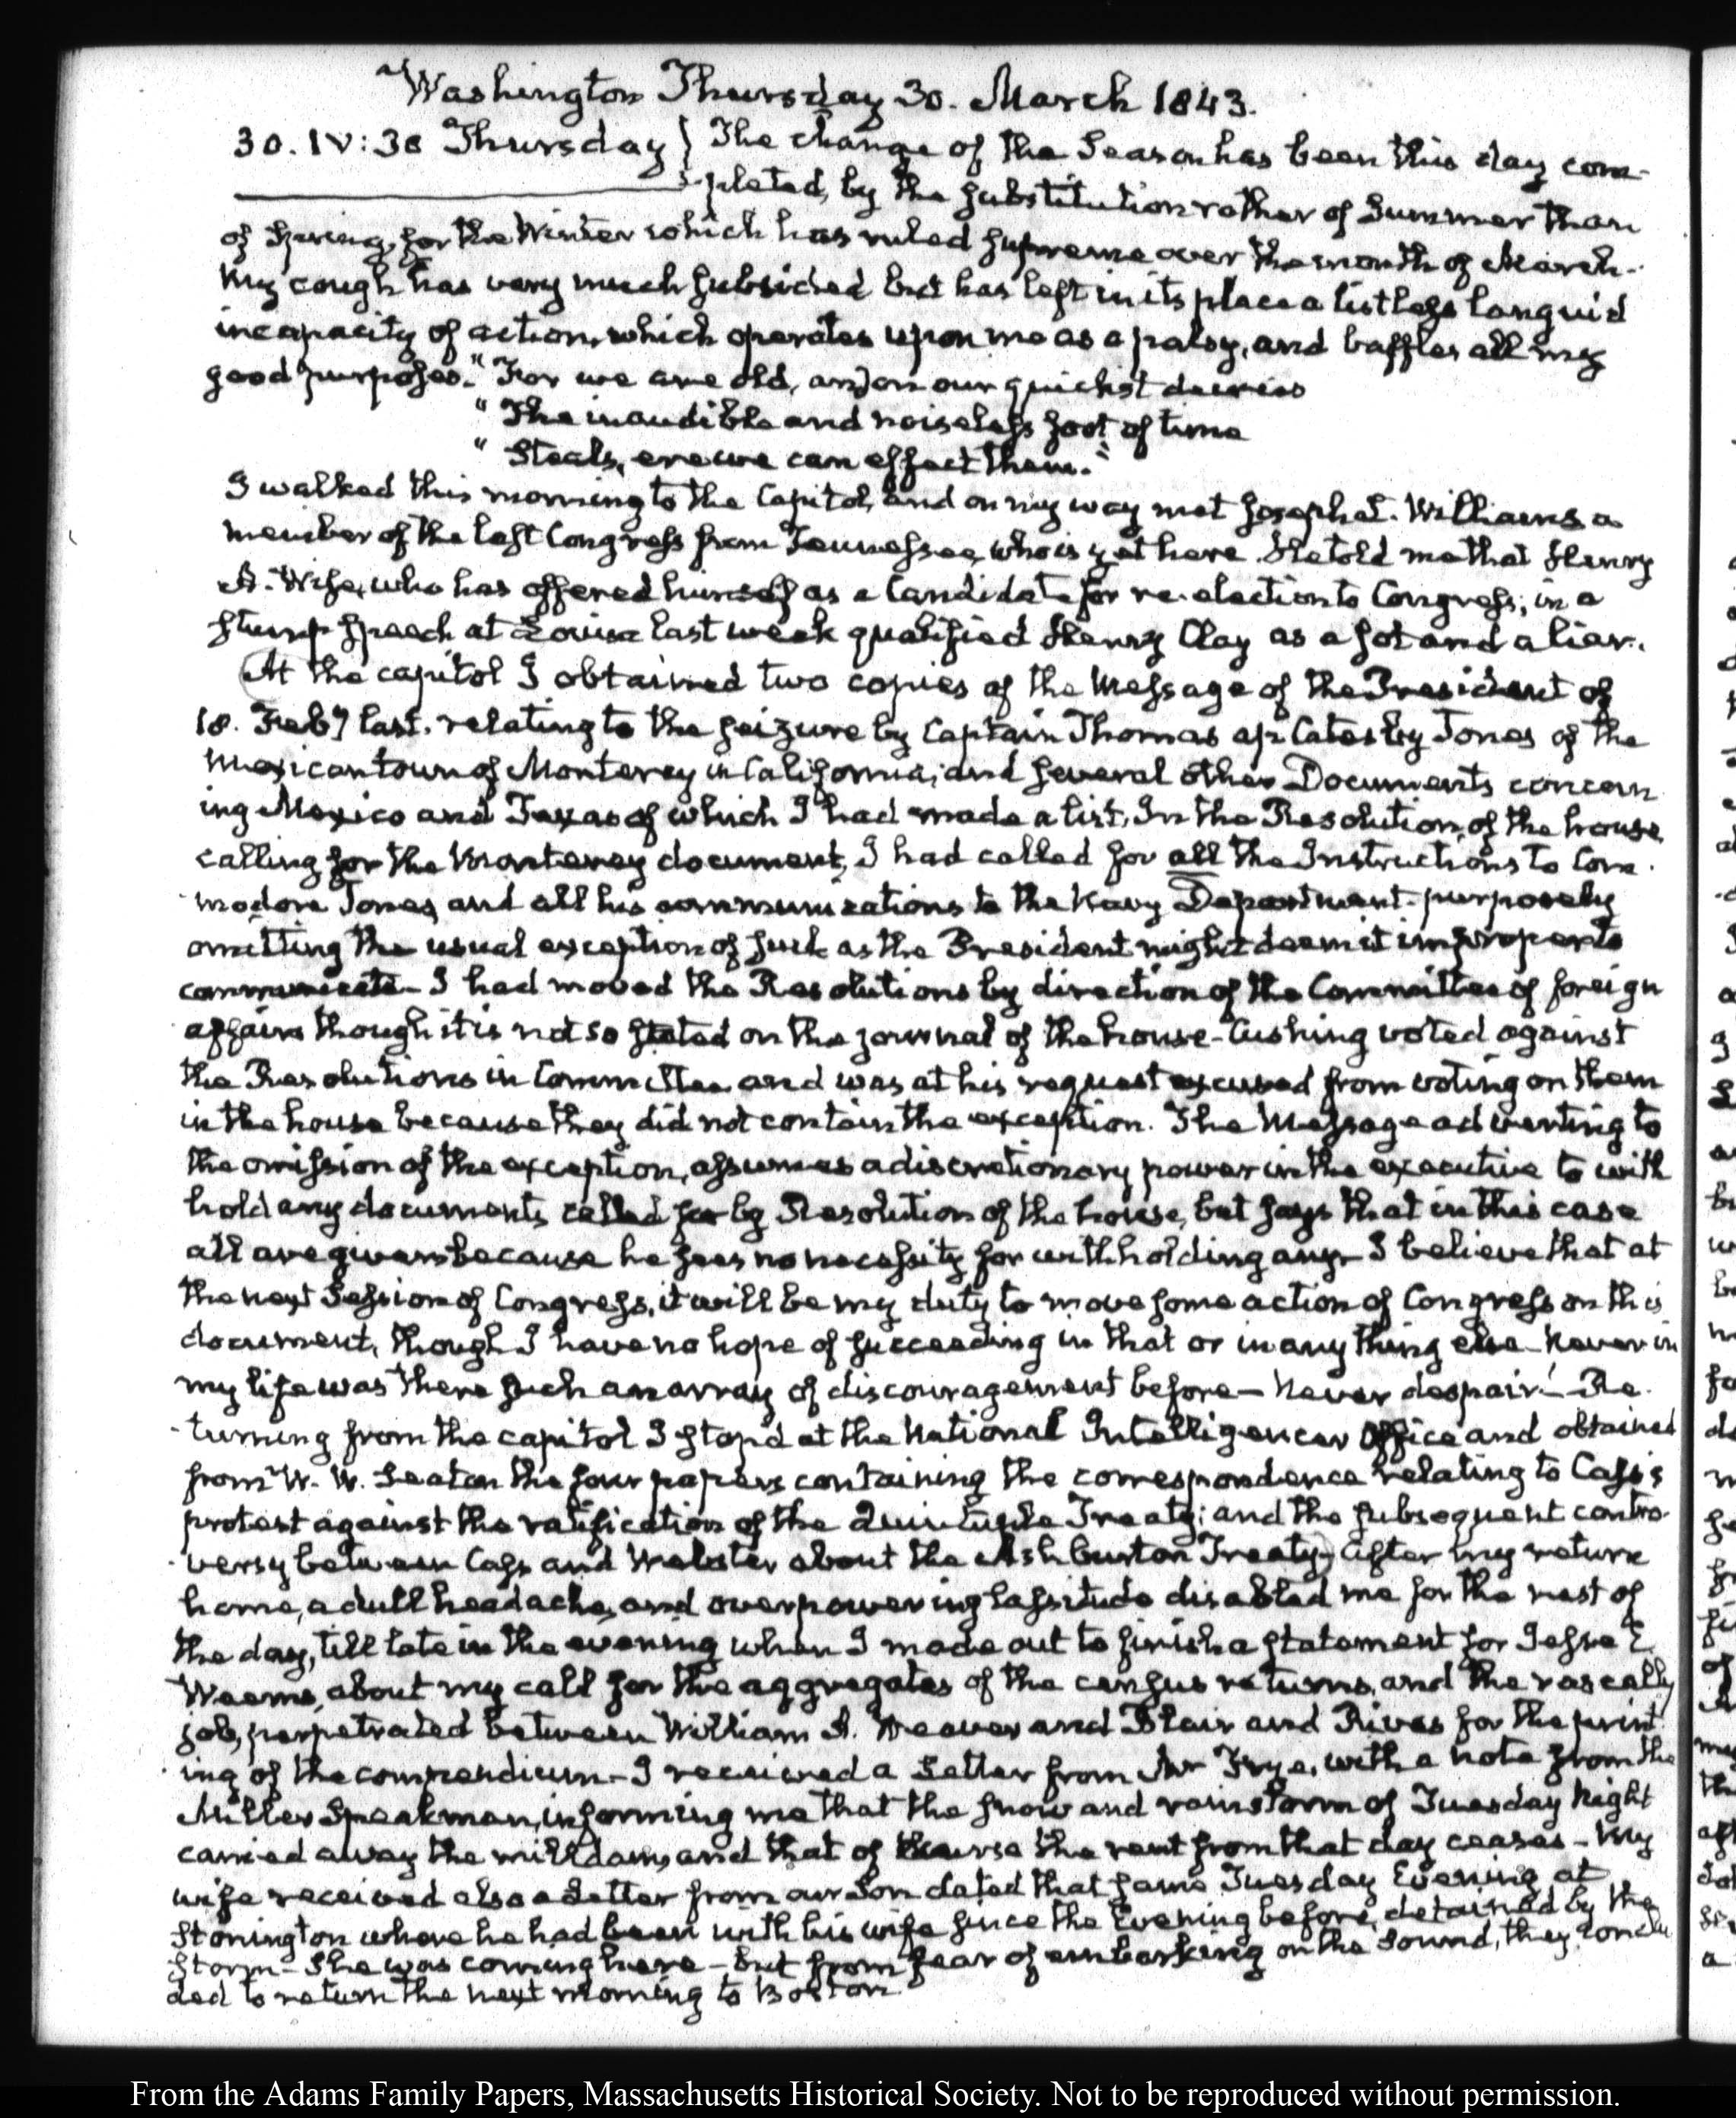 Washington Thursday 30. March 1843.
30. IV:30 Thursday } The change of the Season has been this day com-
-pleted, by the substitution rather of Summer than
of Spring, for the Winter which has ruled supreme over the month of March.
My cough has very much subsided but has left in its place a listless languid
incapacity of action, which operates upon me as a palsy, and baffles all my
good purposes. "For we are old, and on our quickest decrees
"The inaudible and noiseless foot of time
"Steals, ere we can effect them."
I walked this morning to the Capitol, and on my way met Joseph L. Williams a
member of the last Congress from Tennessee, who is yet here. He told me that Henry
A. Wise, who has offered himself as a Candidate for re-election to Congress, in a
stump speech at Louisa last week qualified Henry Clay as a sot and a liar.
At the capitol I obtained two copies of the Message of the President of
18. Feby last. relating to the seizure by Captain Thomas ap Catesby Jones of the
Mexican town of Monterey in California; and several other Documents concern
ing Mexico and Texas of which I had made a list. In the Resolution of the house
calling for the Monterey document, I had called for all the Instructions to Com-
modore Jones, and all his communications to the Navy Department - purposely
omitting the usual exception of such as the President might deem it improper to
communicate - I had moved the Resolutions by direction of the Committee of foreign
affairs though it is not so stated on the journal of the house - Cushing voted against
the Resolutions in Committee and was at his request excused from voting on them
in the house because they did not contain the exception. The Message adverting to
the omission of the exception, assumes a discretionary power in the executive to with
hold any documents called for by Resolution of the house, but says that in this case
all are given because he sees no necessity for withholding any - I believe that at
the next Session of Congress, it will be my duty to move some action of Congress on this
document, though I have no hope of succeeding in that or in any thing else - Never in
my life was there such an array of discouragement before - Never despair! - Re-
-turning from the capitol I stop'd at the National Intelligencer Office and obtained
from W. W. Seaton the four papers containing the correspondence relating to Cass's
protest against the ratification of the Quintuple Treaty; and the subsequent contro-
-versy between Cass and Webster about the Ashburton Treaty - After my return
home, a dull headache, and overpowering lassitude disabled me for the rest of
the day, till late in the evening when I made out to finish a statement for Jesse E
Weems, about my call for the aggregates of the census returns, and the rascally
job, perpetrated between William A. Weaver and Blair and Rives for the print-
-ing of the compendium - I received a Letter from Mr Frye, with a note from the
Miller Speakman, informing me that the snow and rainstorm of Tuesday Night
carried away the milldam, and that of course the rent from that day ceases - My
wife received also a Letter from our Son dated that same Tuesday Evening at
Stonington where he had been with his wife since the Evening before, detained by the
storm - She was coming here - but from fear of embarking on the Sound, they conclu
ded to return the next morning to Boston
From the Adams Family Papers, Massachusetts Historical Society. Not to be reproduced without permission.